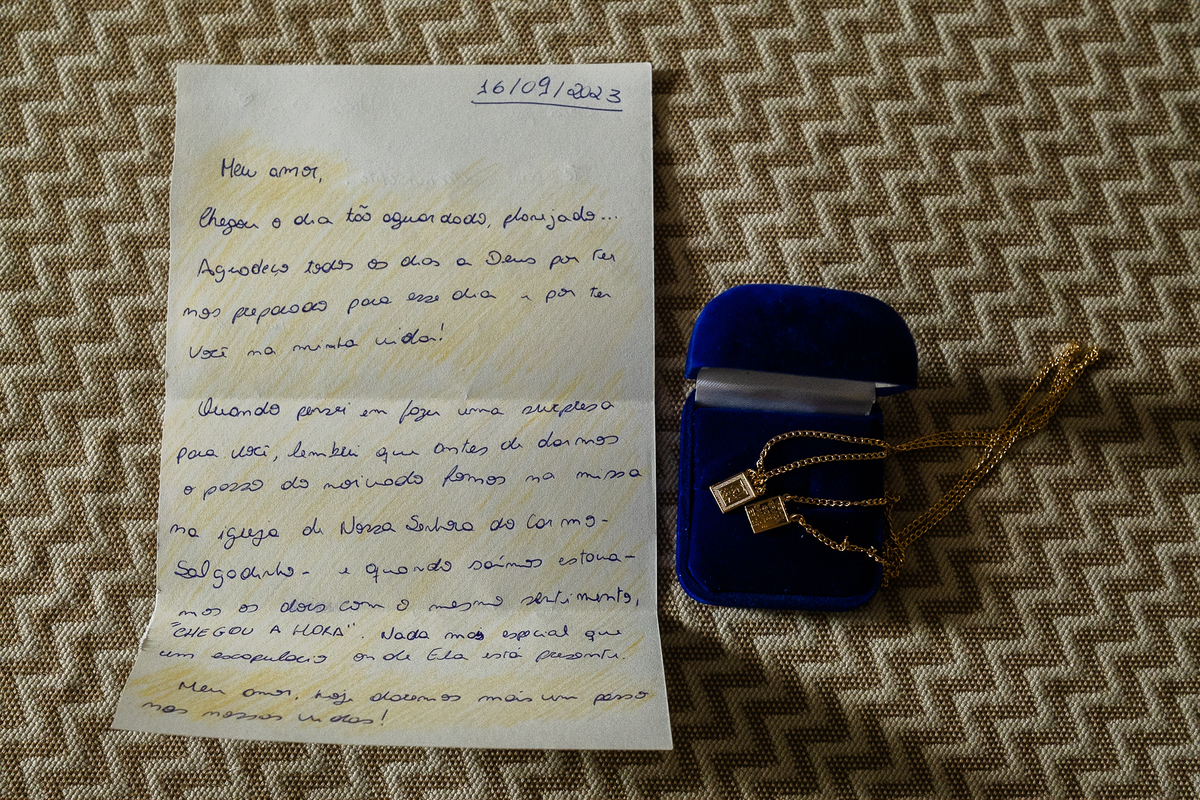 16/09/2023
Meu amor,
Chegou o dia tão aguardado, planejado...
Agradeço todos os dias a Deus por ter
nos preparado para esse dia e por ter
você na minha vida!
Quando pensei em fazer uma surpresa
para você, lembrei que antes de darmos
o passo do noivado fomos na missa
na igreja de Nossa Senhora do Carmo-
Salgadinho- e quando saímos estáva-
mos os dois com o mesmo sentimento,
"CHEGOU A HORA". Nada mais especial que
um escapulário onde Ela está presente.
Meu amor, hoje daremos mais um passo
nas nossas vidas!